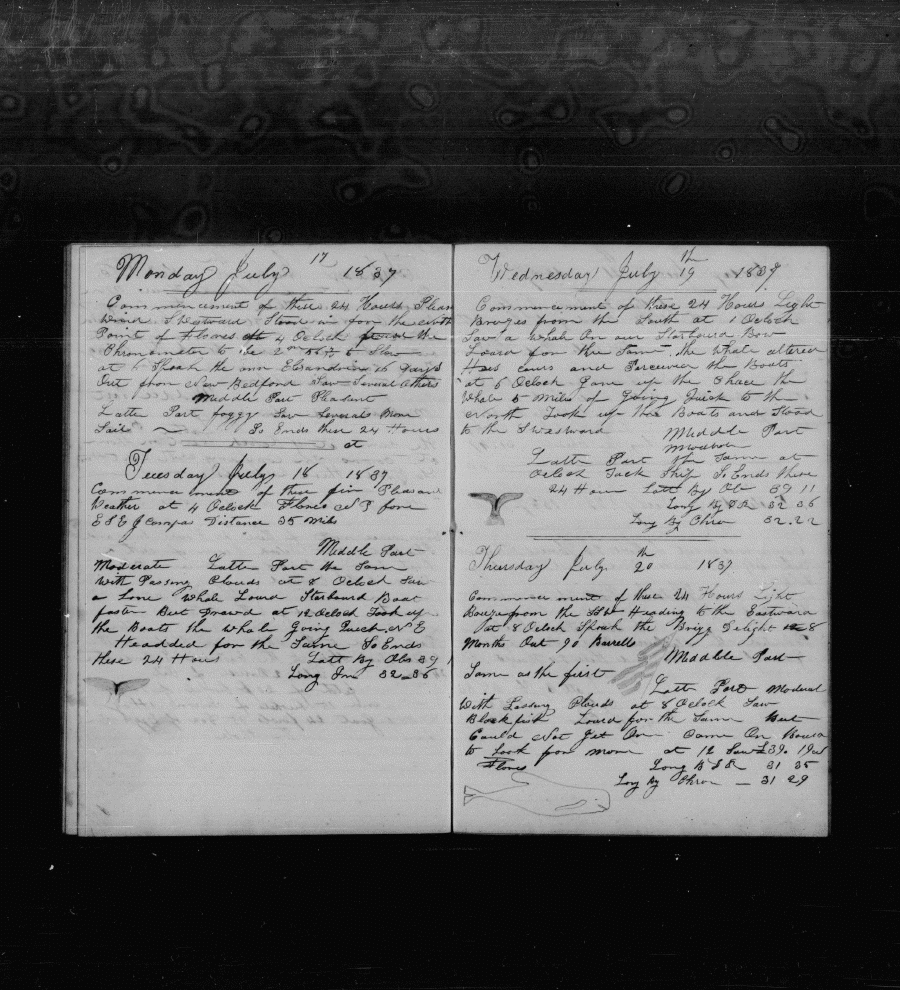 Monday July 17 1837
Commencement of these 24 Hours Pleas
Wind S Westward Stood in for the
Point of Flores at 4 Oclock the
Chronometer to be 2
at 6 Speak the 16 Days
Out from New Bedford Saw Several Others
Middle Part Pleasent
Latter Part foggy Saw Several More
Sail So Ends these 24 Hours
at
Tuesday July 18 1837
Commencement of these fin Pleasant
Weather at 4 Oclock Flores
E S E Distance 35 Miles
Middle Part
Moderate Latter Part the Sam
With Passing Clouds at 8 Oclock Saw
a Lone Whale Lourd Starboard Boat
faster But Drawd at 12 Oclock Took up
the Boats the Whale Going Quick N E
Headded for the Same So Ends
these 24 Hours Latt By Obs 39
Long 32-36
Wednesday July 19th 1837
Commencement of these 24 Hours Light
Breezes from the South at 1 Oclock
Saw a Whale On our Starboard Bow
Lourd for the Same the Whale altered
His cours and the Boats
at 6 Oclock Gave up the Chace the
Whale 5 Miles of Going Quick to the
North Took up the Boats and Stood
to the Middle Part
Latter Part the Same at
Oclock Tack Ship So Ends these
24 Hours Latt By Obs 39 11
Long By D R 32 36
Long By Chron 32..22
Thursday July 20th 1837
Commencement of these 24 Hours Light
from the Heading to the Eastward
at 8 Oclock Speak the Brig Delight 8
Months Out 90 Barrells
Middle Part
Same as the first
Latter Part Moderat
With Passing Clouds at 8 Oclock Saw
Blackfish Lourd for the Same But
Could Not Get On Came On
to Look for more at 12 Saw
Flores Long B D R 31 35
Long By Chron — 31 29